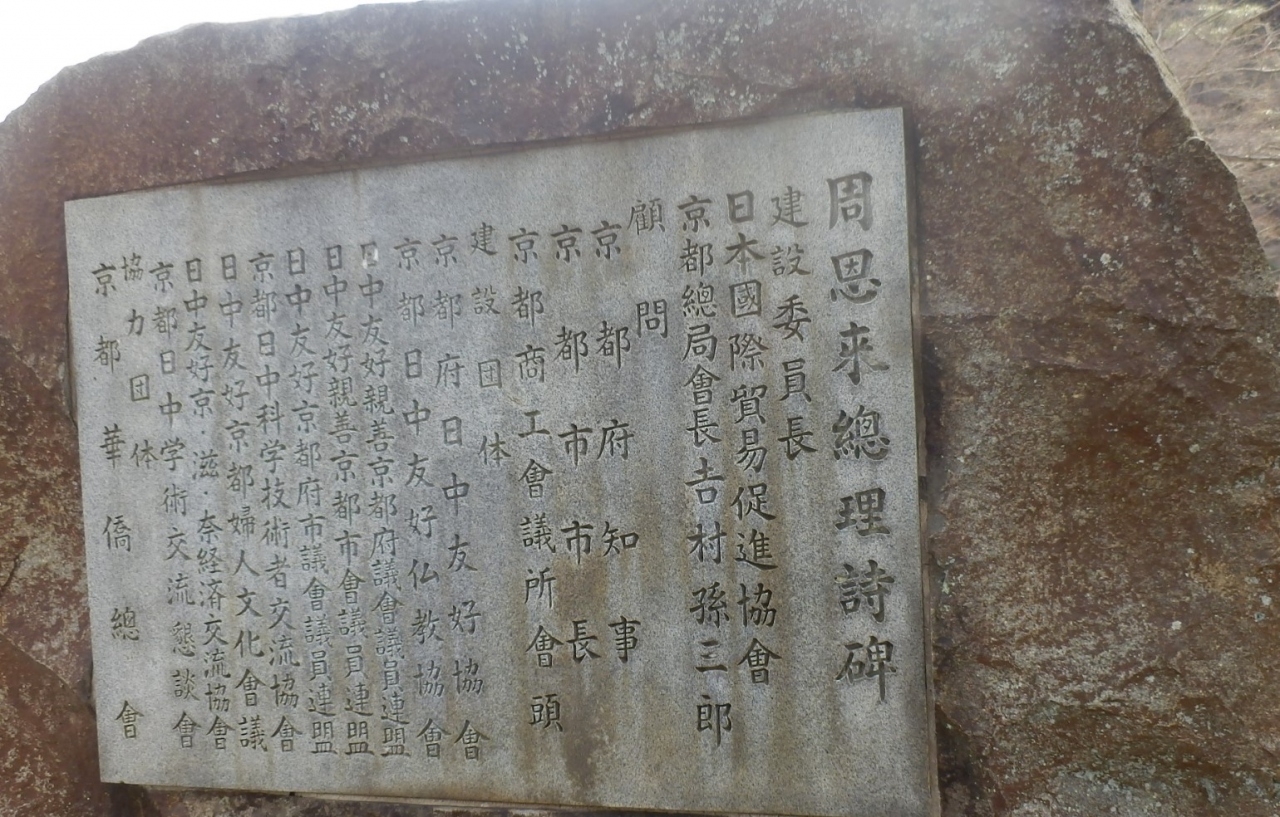 周恩来總理詩碑
建設委員長
日本國際貿易促進協會
京都總局會長吉村孫三郎
顧問
京都府知事
京都市市長
京都商工會議所會頭
建設団体
京都府日中友好協會
京都日中友好仏教協會
日中友好親善京都府議會議員連盟
日中友好親善京都市會議員連盟
日中友好京都府市議會議員連盟
京都日中科学技術者交流協會
日中友好京都婦人文化會議
日中友好京·滋·奈経済交流協會
京都日中学術交流懇談會
協力団体
京都華僑總會